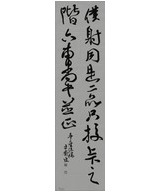 僕射同是二品只校上下之
階六曹尚書並正